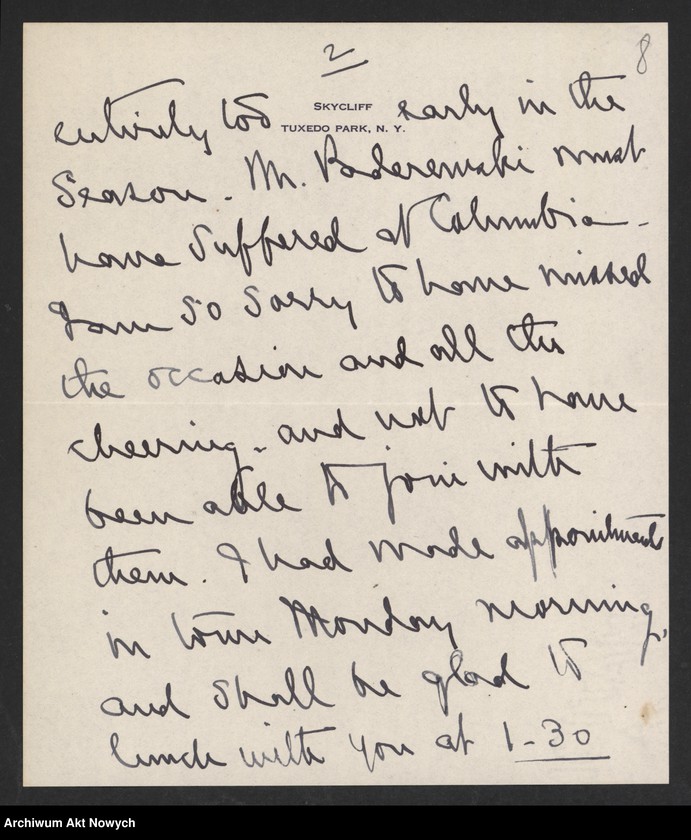 2
8
SKYCLIFF
TUXEDO PARK, N. Y.
entirely too early in the
Season. Mr. Paderewski must
have suffered at Columbia -
I am so sorry to have missed
the occasion and all the
cheering - and not to have
been able to join with
them. I had made appointments
in town Monday morning,
and shall be glad to
lunch with you at 1-30
Archiwum Akt Nowych